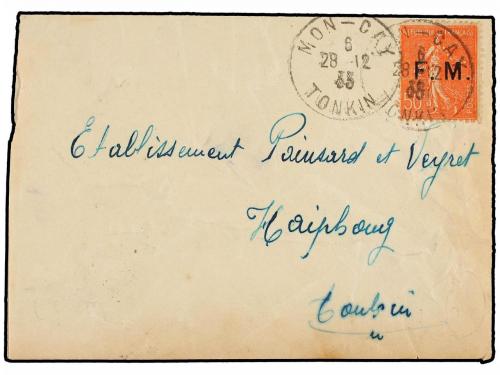 MON-CAY
6
28-12
35
TONKIN
F.M.
50
Etablissement Poinsard et Veyret
Haiphong
Tonkin